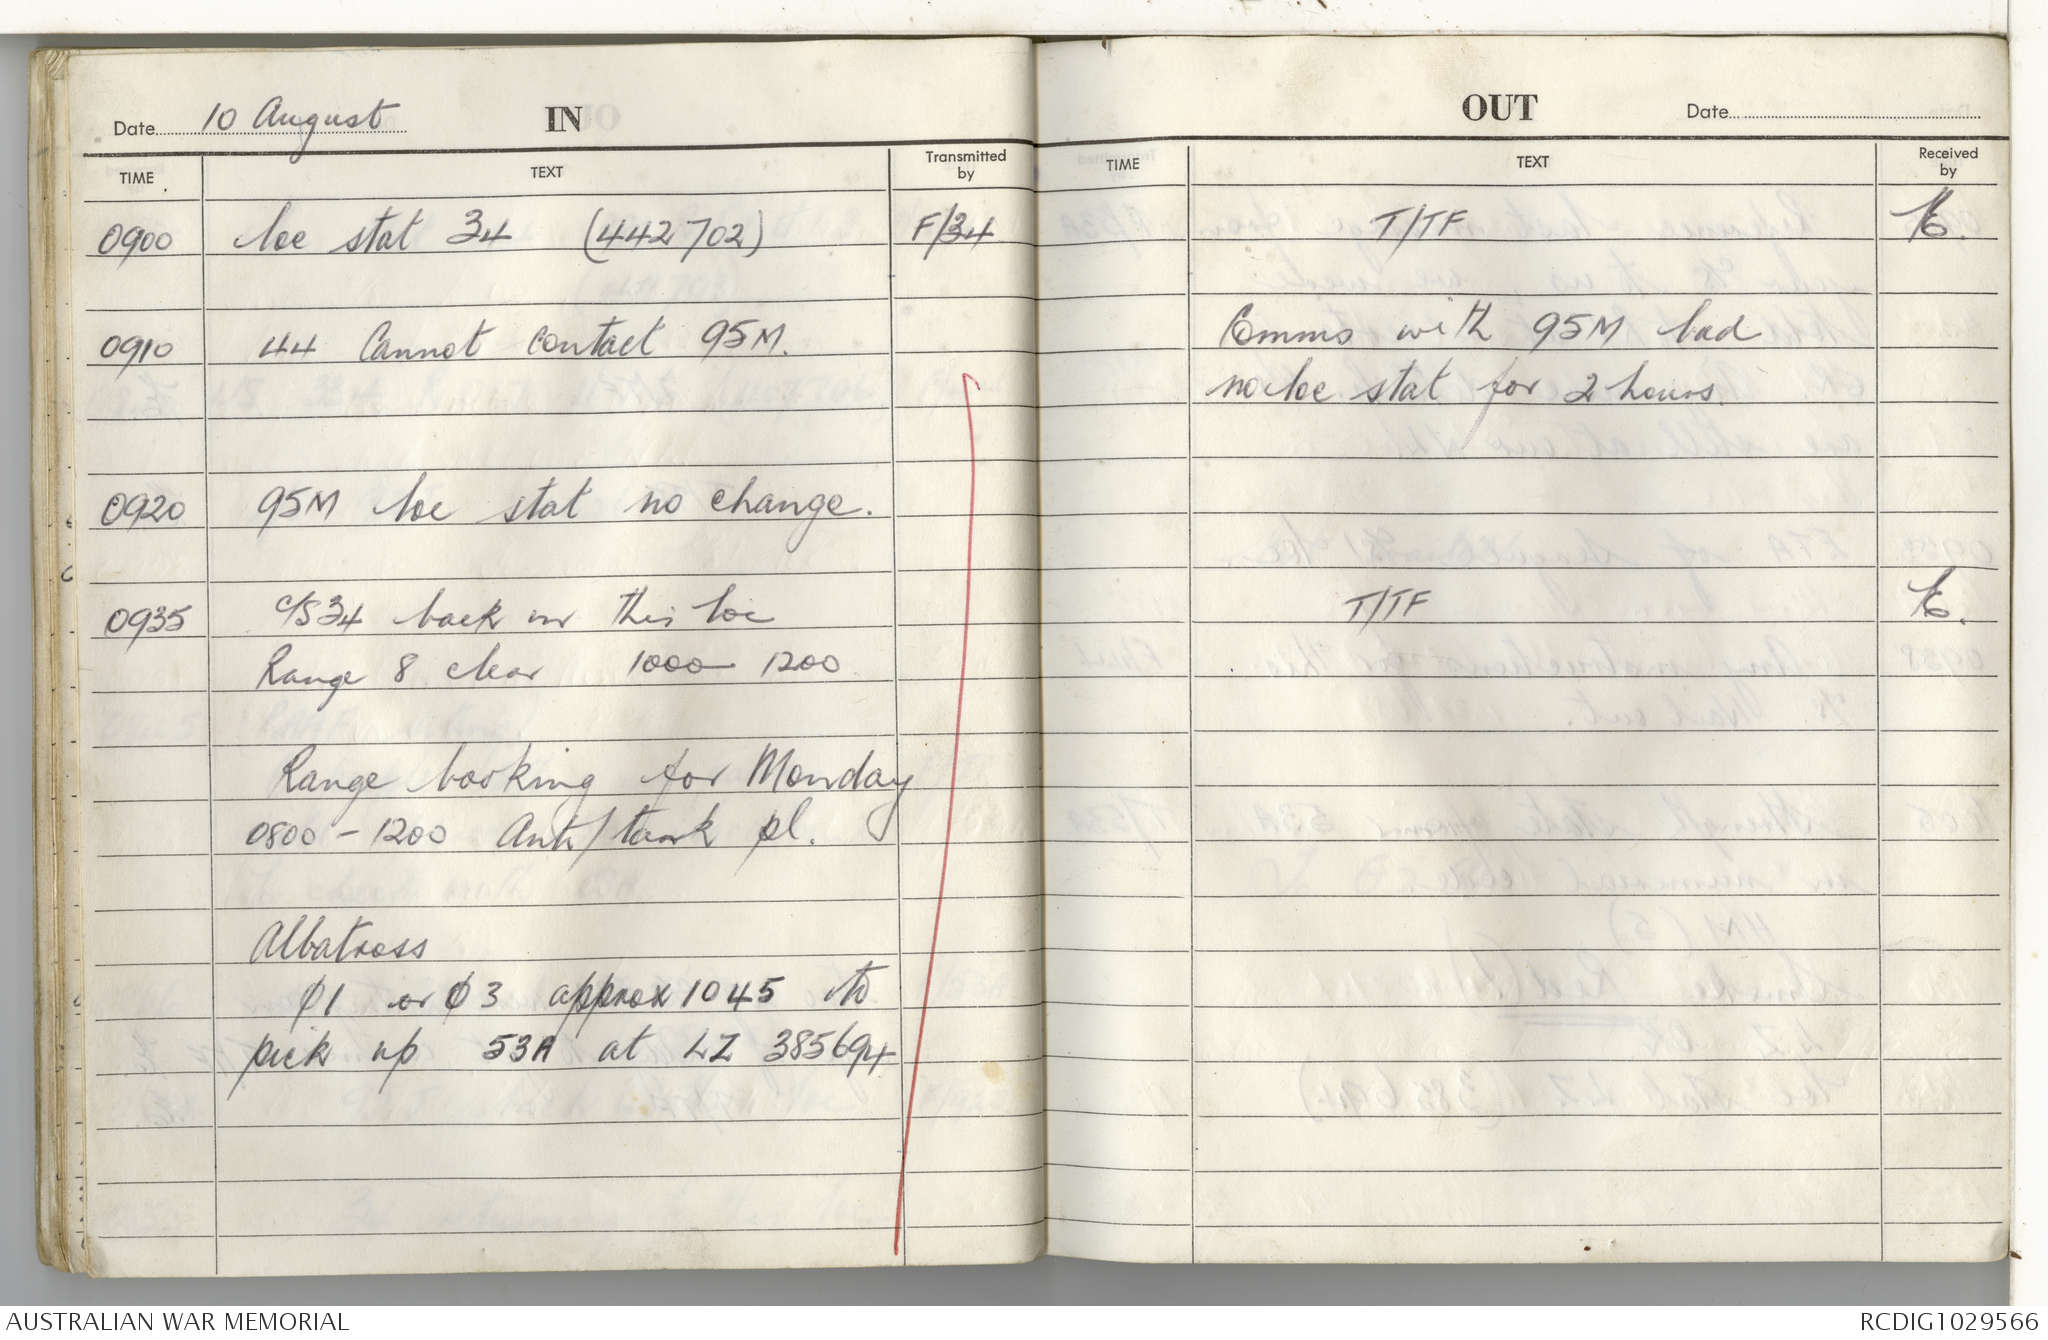 Date 10 August IN
TIME TEXT Transmitted by
0900 loc stat 34 (442702) F/34
0910 44 Cannot contact 95M.
0920 95M loc stat no change.
0935 c/s 34 back in this loc
Range 8 clear 1000 - 1200
Range booking for Monday
0800 - 1200 Anti/tank pl.
Albatross
Ø1 or Ø3 approx 1045 to
pick up 53A at LZ 385694
OUT Date
TIME TEXT Received by
T/TF
Comms with 95M bad
no loc stat for 2 hours.
T/TF
AUSTRALIAN WAR MEMORIAL
RCDIG1029566